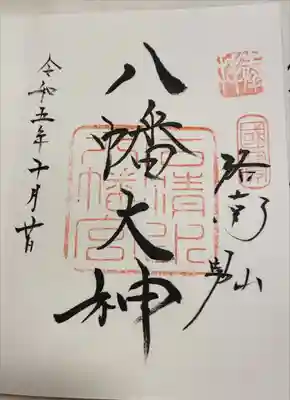 國寶
洛南男山
八幡大神
石清水
八幡宮
令和五年十月廿日